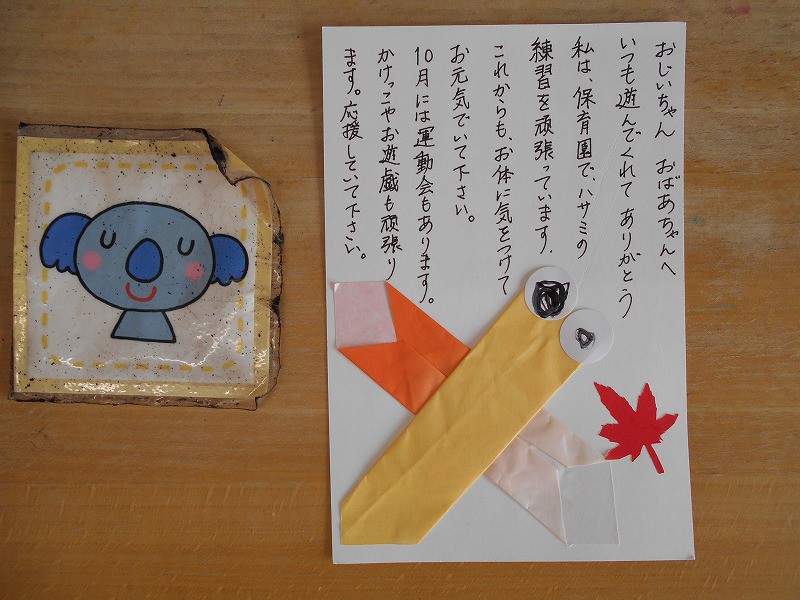 おじいちゃん おばあちゃんへ
いつも遊んでくれて ありがとう
私は、保育園で、ハサミの
練習を頑張っています.
これからも、お体に気をつけて
お元気でいて下さい。
10月には運動会もあります。
かけっこやお遊戯も頑張り
ます。応援していて下さい。